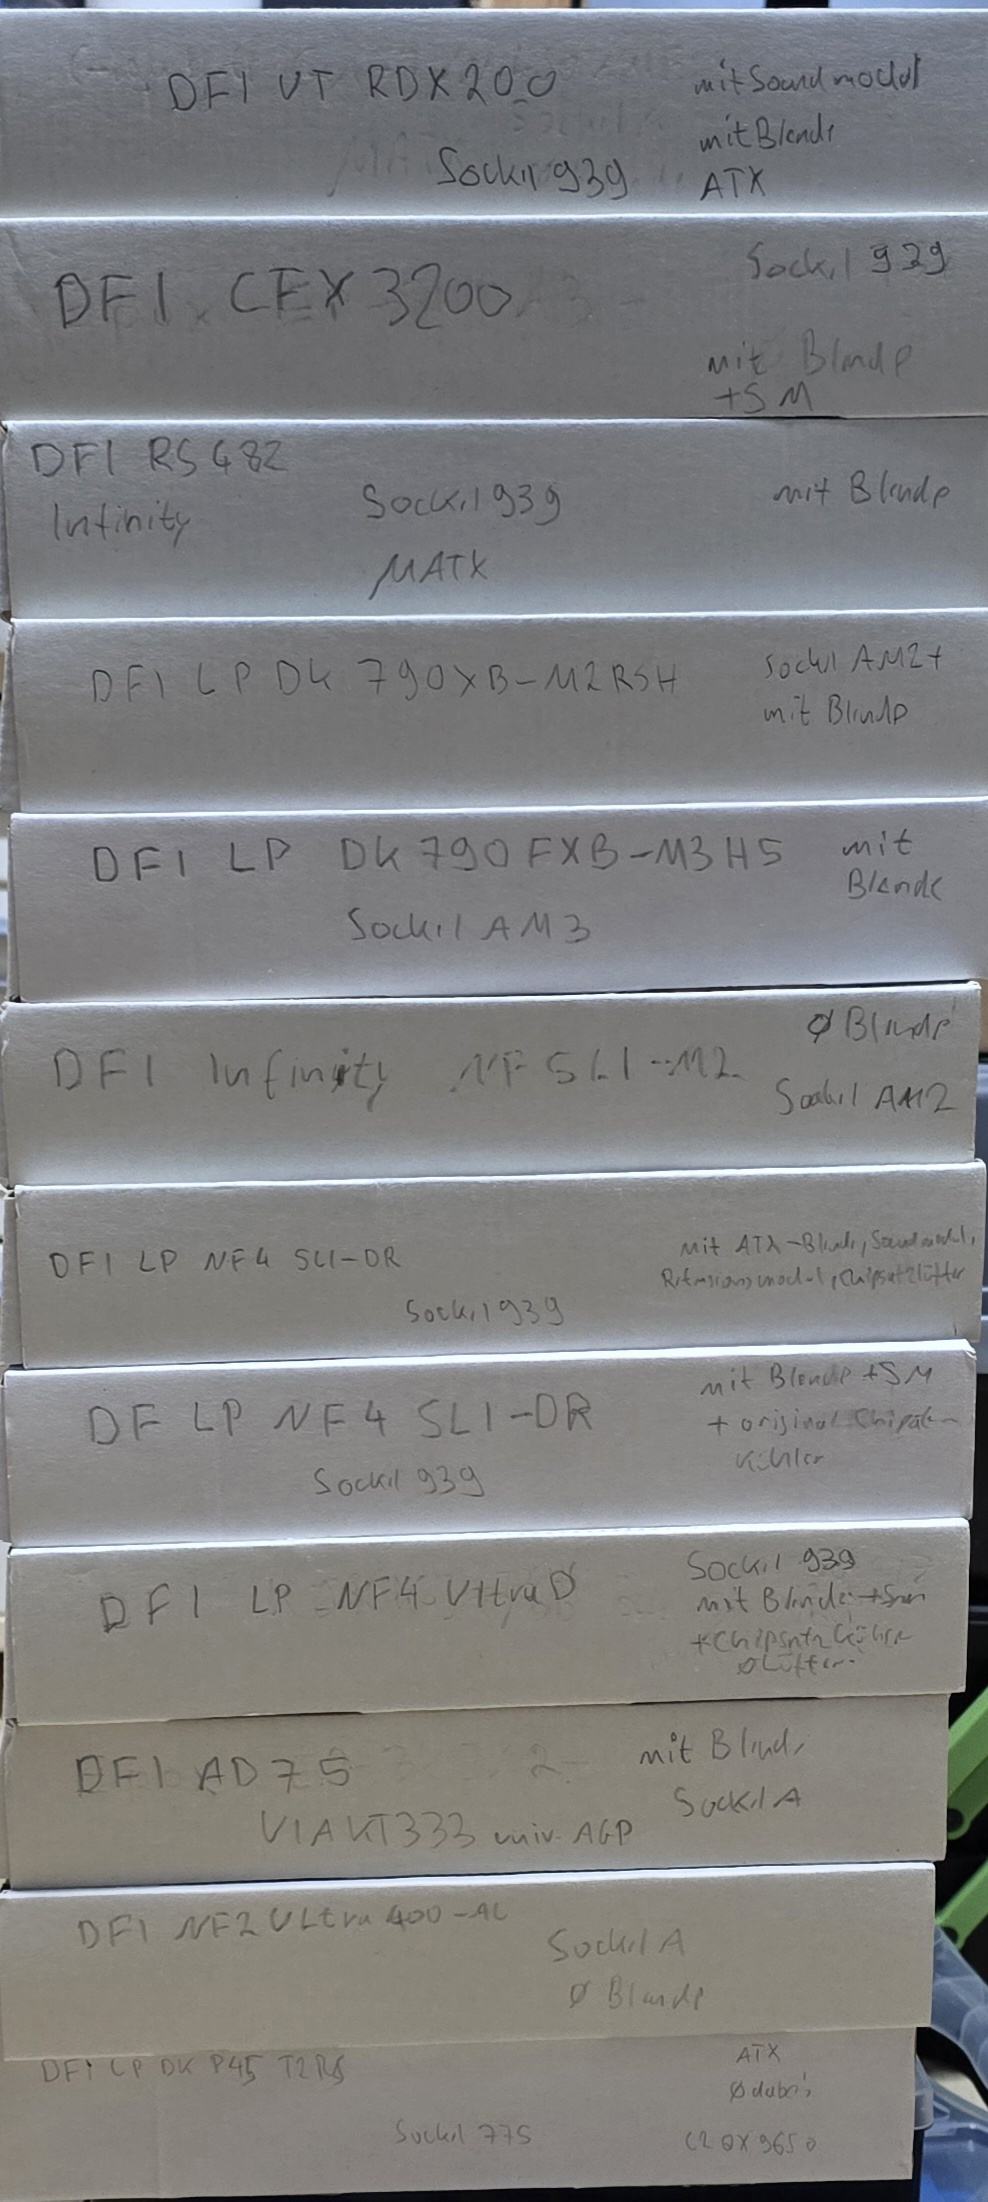 DFI UT RDX200
mit Soundmodul
mit Blende
Sockel 939
ATX
DFI CFX3200
Sockel 939
mit Blende
+SM
DFI RS482
Infinity
Sockel 939
mit Blende
µATX
DFI LP DK 790XB-M2RSH
Sockel AM2+
mit Blende
DFI LP DK 790FXB-M3H5
mit
Blende
Sockel AM3
Ø Blende
DFI Infinity NF SLI-M2
Sockel AM2
DFI LP NF4 SLI-DR
mit ATX-Blende, Soundmodul,
Chipsatzlüfter
Sockel 939
DF LP NF4 SLI-DR
mit Blende +SM
+ original Chipsatz
Kühler
Sockel 939
DFI LP NF4 Ultra D
Sockel 939
mit Blende
+Chipsatzkühler
Ø Lüfter
DFI AD75
mit Blende
Sockel A
VIA KT333 univ. AGP
DFI NF2 ULtra 400-AL
Sockel A
Ø Blende
DFI LP DK P45 T2RS
ATX
Ø dabei
Sockel 775
C2QX9650